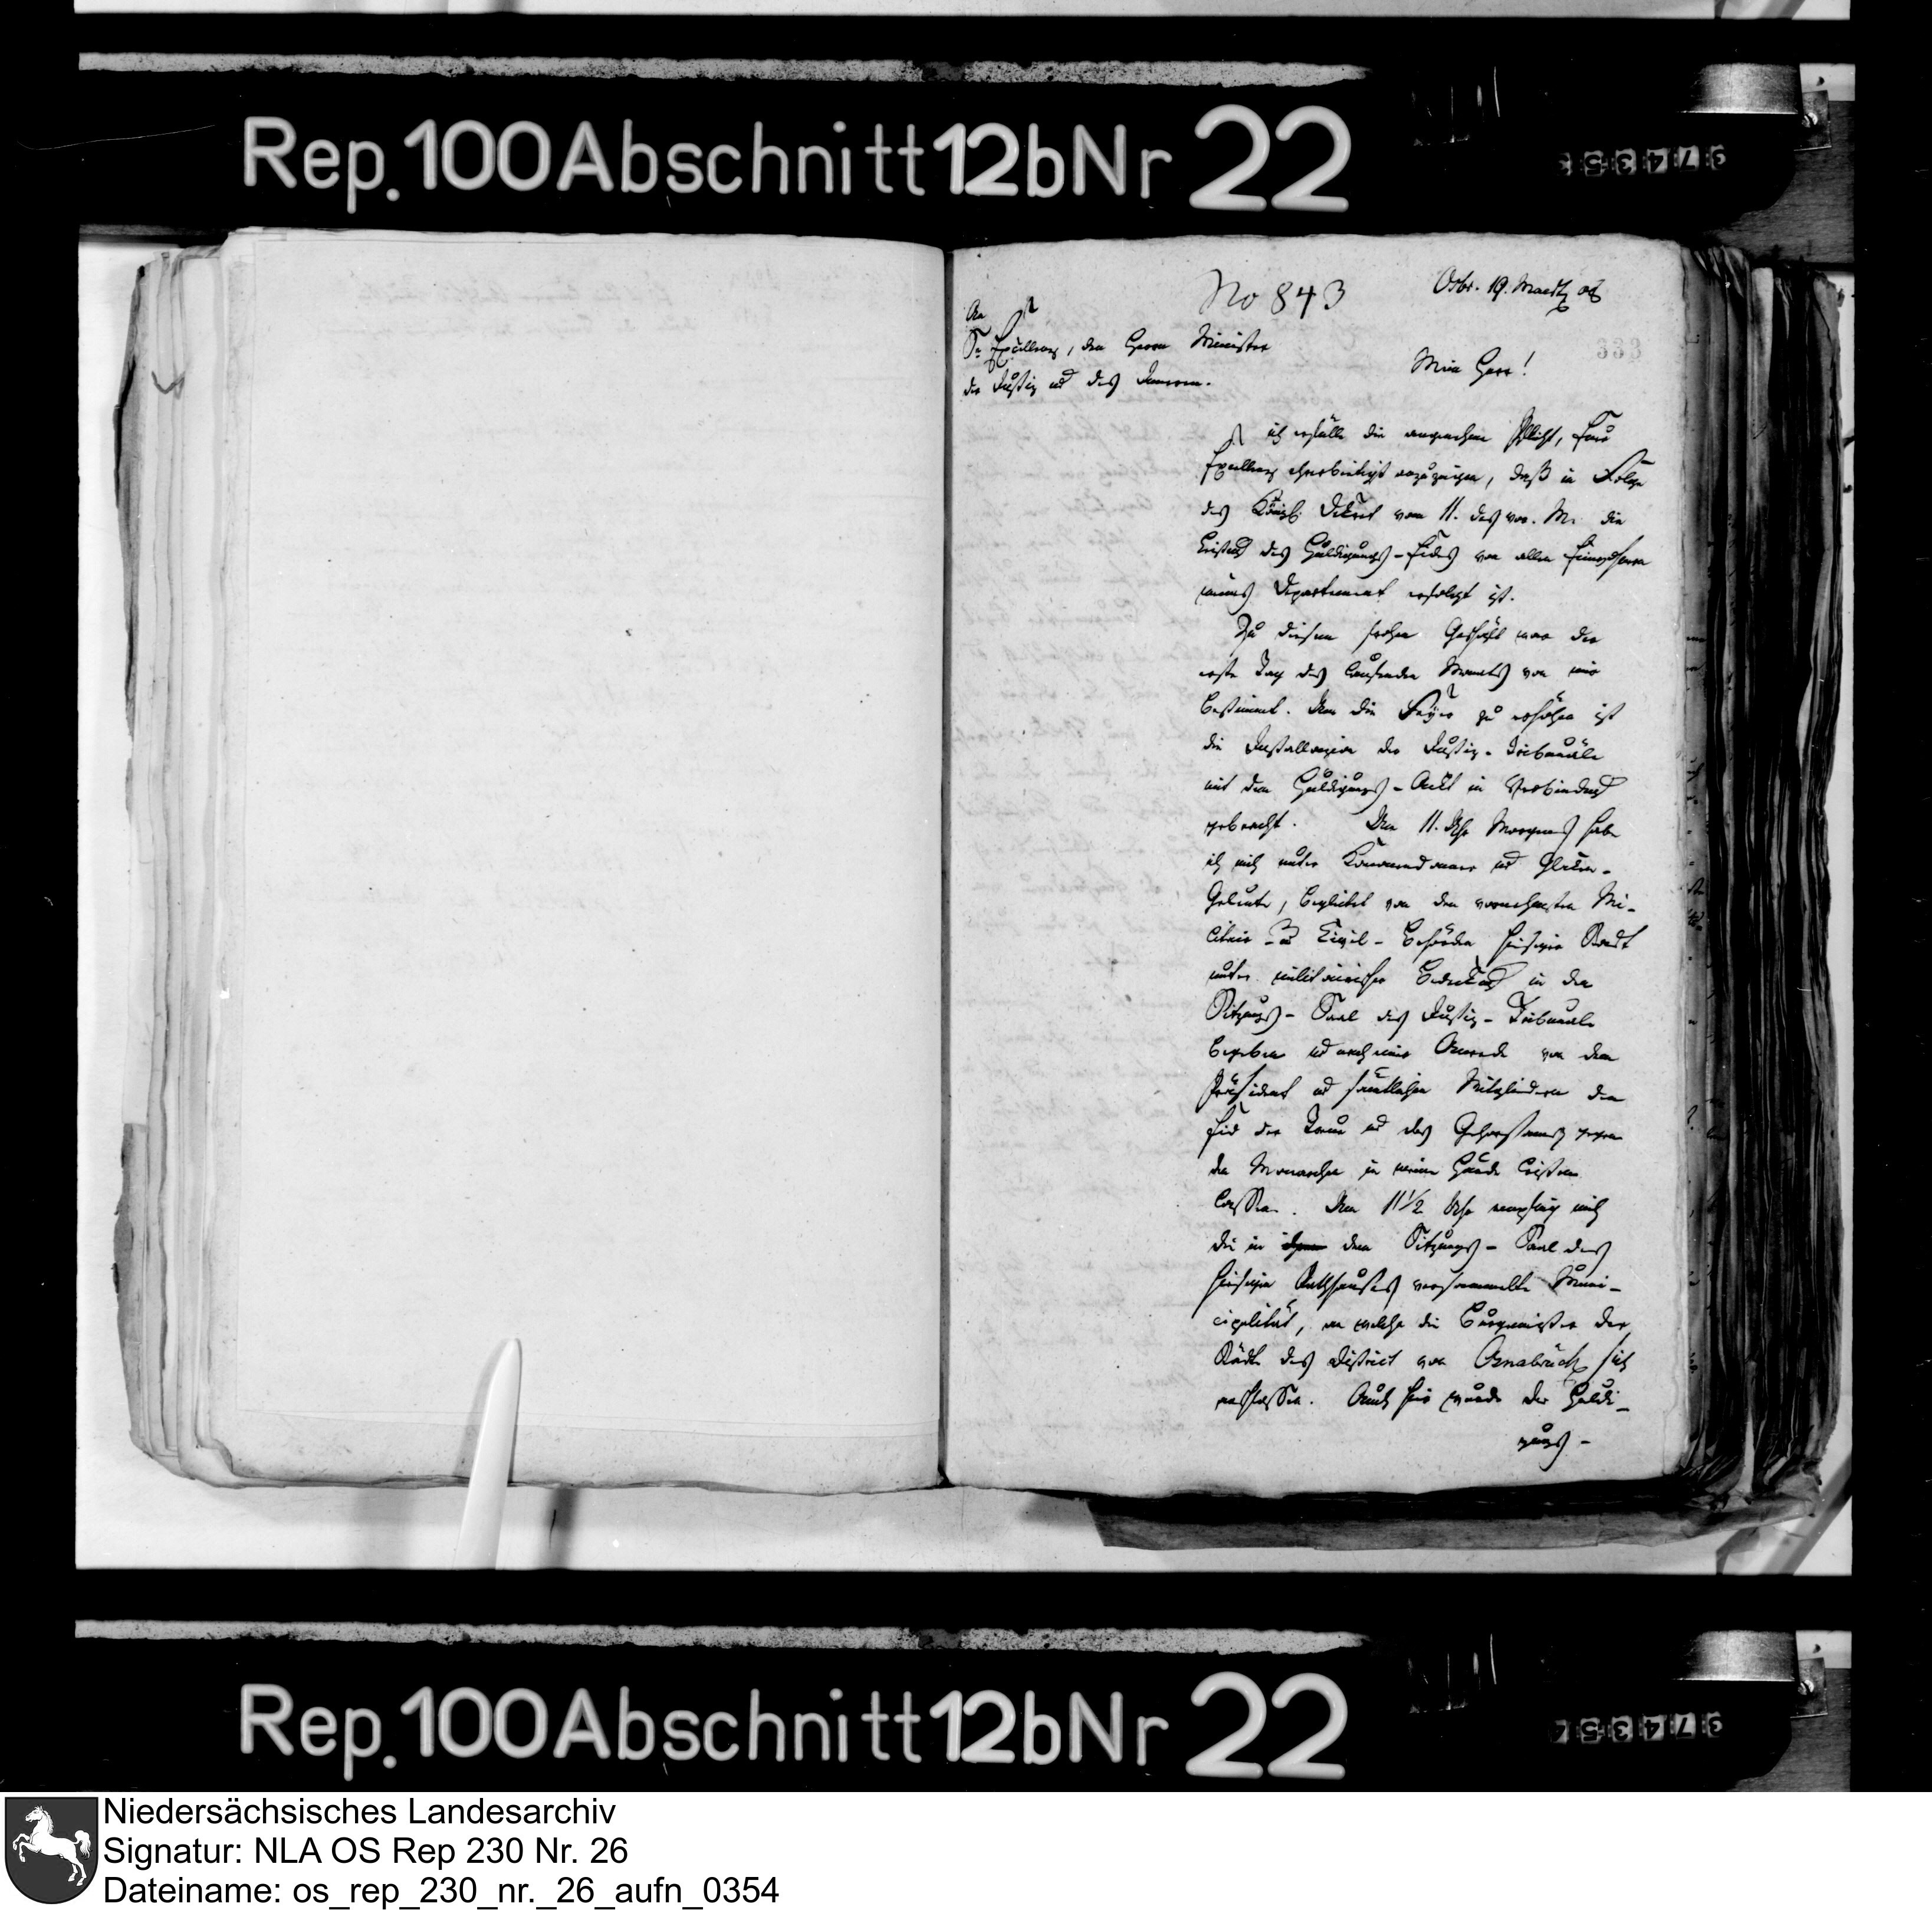 Rep. 100 Abschnitt 12b Nr 22
No 843
Osbr. 19. Maertz 08
333
An
Sr Excellenz, den Herrn Minister
der Justiz und des Inneren.
Mein Herr!
ich erfülle die angenehme Pflicht, Euer
Excellenz ehrerbietigst anzuzeigen, daß in Folge
des Königl. Dekret vom 11. des vor. M. die
Leistung des Huldigungs-Eides von allen Einwohnern
meines Departement erfolgt ist.
Zu diesem frohen Geschäft war der
erste Tag des laufenden Monats von mir
bestimmt. Um die Feyer zu erhöhen ist
die Installazion der Justiz-Tribunäle
mit dem Huldigungs-Ackt in Verbindung
gebracht. Um 11. Uhr Morgens habe
ich mich unter Kanonendonner und Glocken-
Geläute, begleitet von den vornehmsten Mi-
litair- und Civil-Behörden hiesiger Stadt
unter militairischer Bedeckung in den
Sitzungs-Saal des Justiz-Tribunals
begeben und nach einer Anrede von dem
Präsident und sämtlichen Mitgliedern den
Eid der Treue und des Gehorsams gegen
den Monarchen in meine Hände leisten
lassen. Um 11 1/2 Uhr empfing mich
die in dem Sitzungs-Saal des
hiesigen Rathhauses versammelte Muni-
cipalität, an welche die Bürgermeister der
Städte des District von Osnabrück sich
anschlossen. Auch hier wurde der Huldi-
gungs-
Rep. 100 Abschnitt 12b Nr 22
Niedersächsisches Landesarchiv
Signatur: NLA OS Rep 230 Nr. 26
Dateiname: os_rep_230_nr._26_aufn_0354